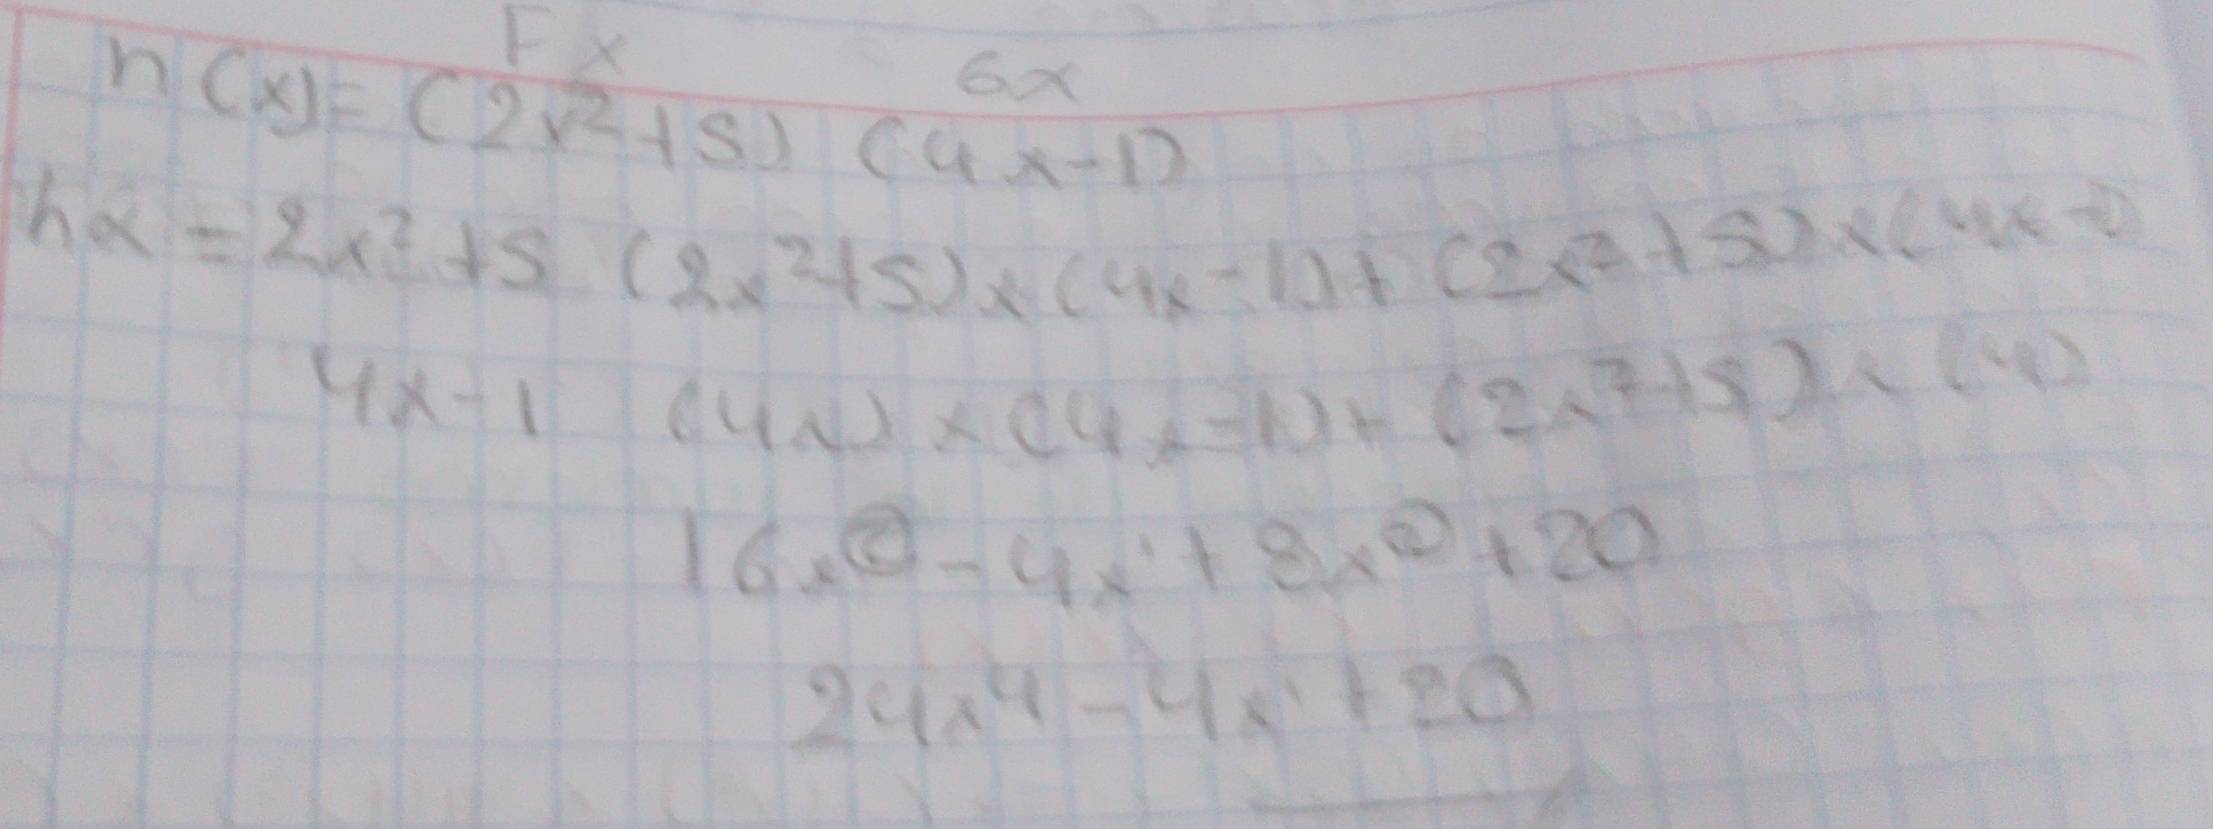 F x 6x
h(x)= (2x²+5) (4x-1)
hx = 2x²+5 (2x²+5)x(4x-1)+(2x²+5)x(4x-1)
4x-1 (4x)x(4x-1)+(2x²+5)x(4)
16x²-4x¹+8x²+20
24x⁴-4x¹+20